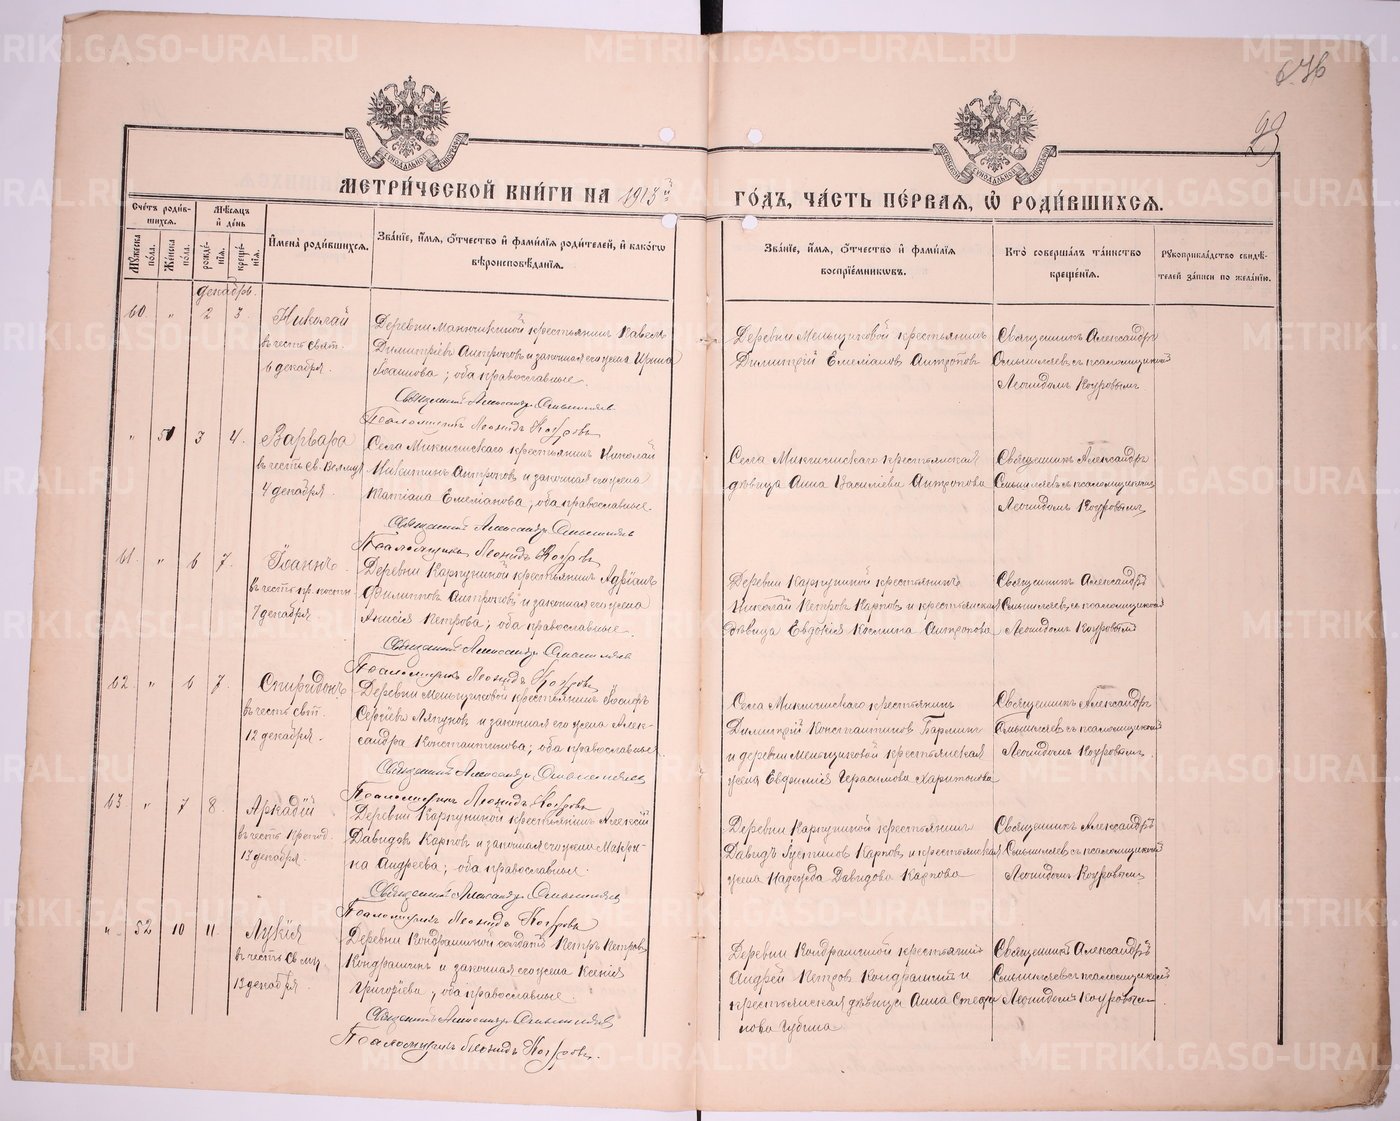 МЕТРИ́ЧЕСКОЙ КНИ́ГИ НА 1913й ГО́ДЪ, ЧА́СТЬ ПЕ́РВАЯ, Ѡ РОДИ́ВШИХСЯ.
Сче́тъ роди́вшихся.
Мѣ́сяцъ и де́нь
Му́жеска по́ла.
Же́нска по́ла.
рожде́нїя.
креще́нїя.
И҆мена̀ роди́вшихся.
Зва́нїе, и҆́мя, ѻ҆́тчество и҆ фами́лїя роди́телей, и҆ како́гѡ вѣроисповѣ́данїя.
Зва́нїе, и҆́мя, ѻ҆́тчество и҆ фами́лїя воспрїе́мникѡвъ.
Кто̀ соверша́лъ та́инство креще́нїя.
Рукоприкла́дство свидѣ́телей за́писи по жела́нїю.
декабрь.
60. " 2 3.
Николай
въ честь свят.
6 декабря.
Деревни крестьянинъ Павелъ
Димитріевъ Антроповъ и законная его жена Ирина
Іоаннова; оба православные.
Священникъ Александръ
Псаломщикъ Леонидъ Коуровъ
Деревни Меньщиковой крестьянинъ
Димитрій Емеліановъ Антроповъ
Священникъ Александръ
съ псаломщикомъ
Леонидомъ Коуровымъ
" 51 3 4.
Варвара
въ честь св. Великмч.
4 декабря.
Села Микшинскаго крестьянинъ Николай
Никитинъ Антроповъ и законная его жена
Татіана Емеліанова; оба православные.
Священникъ Александръ
Псаломщикъ Леонидъ Коуровъ
Села Микшинскаго крестьянская
дѣвица Анна Васильева Антропова
Священникъ Александръ
съ псаломщикомъ
Леонидомъ Коуровымъ
61. " 6 7.
Іоаннъ
въ честь пр.
7 декабря
Деревни Карпуниной крестьянинъ Адріанъ
Филиповъ Антроповъ и законная его жена
Анисія Петрова; оба православные.
Священникъ Александръ
Псаломщикъ Леонидъ Коуровъ
Деревни Карпуниной крестьянинъ
Николай Петровъ Карповъ и крестьянская
дѣвица Евдокія Космина Антропова
Священникъ Александръ
съ псаломщикомъ
Леонидомъ Коуровымъ
62. " 6 7.
Спиридонъ
въ честь свят.
12 декабря.
Деревни Меньщиковой крестьянинъ Іосифъ
Сергіевъ Ляпуновъ и законная его жена Алек-
сандра Константинова; оба православные.
Священникъ Александръ
Псаломщикъ Леонидъ Коуровъ
Села Микшинскаго крестьянинъ
Димитрій Константиновъ Барминъ
и деревни Меньщиковой крестьянская
жена Евфимія Герасимова Харитонова
Священникъ Александръ
съ псаломщикомъ
Леонидомъ Коуровымъ.
63 " 7 8.
Аркадій
въ честь препод.
13 декабря.
Деревни Карпуниной крестьянинъ Алексій
Давидовъ Карповъ и законная его жена Матро-
на Андреева; оба православные.
Священникъ Александръ
Псаломщикъ Леонидъ Коуровъ
Деревни Карпуниной крестьянинъ
Давидъ Іустиновъ Карповъ и крестьянская
жена Надежда Давидова Карпова
Священникъ Александръ
съ псаломщикомъ
Леонидомъ Коуровымъ.
" 52 10 11.
Лукія
въ честь св. мц.
13 декабря.
Деревни Кондрашиной солдатъ Петръ Петровъ
Кондрашинъ и законная его жена Ксенія
Григоріева; оба православные.
Священникъ Александръ
Псаломщикъ Леонидъ Коуровъ.
Деревни Кондрашиной крестьянинъ
Андрей Петровъ Кондрашинъ и
крестьянская дѣвица Анна Стефа-
нова Губина
Священникъ Александръ
съ псаломщикомъ
Леонидомъ Коуровымъ
METRIKI.GASO-URAL.RU